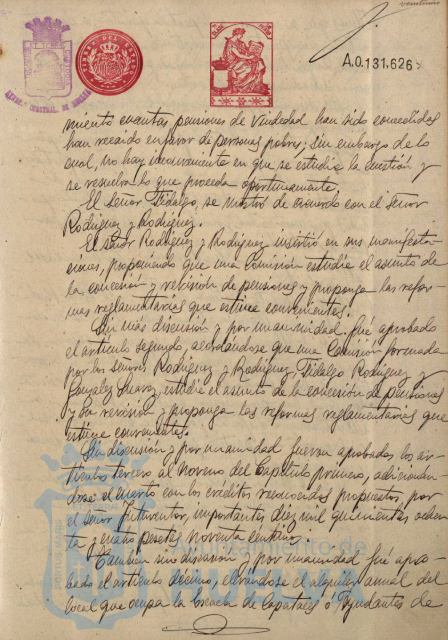 A.0.131.626
miento cuantas pensiones de viudedad han sido concedidas
han recaido en favor de personas pobres; sin embargo de lo
cual, no hay inconveniente en que se estudie la cuestión y
se resuelva lo que proceda oportunamente.
El Señor Fidalgo, se mostró de acuerdo con el Señor
Rodriguez y Rodriguez.
El Señor Rodriguez y Rodriguez insistió en sus manifesta-
ciones, proponiendo que una Comisión estudie el asunto de
la concesión y revisión de pensiones y proponga las refor-
mas reglamentarias que estime convenientes.
Sin más discusión y por unanimidad, fué aprobado
el artículo segundo, acordándose que una Comisión formada
por los Señores Rodriguez y Rodriguez, Fidalgo Rodriguez y
Gonzalez Suarez, estudie el asunto de la concesión de pensiones
y su revisión y proponga las reformas reglamentarias que
estime convenientes.
Sin discusión y por unanimidad fueron aprobados los ar-
tículos tercero al noveno del Capítulo primero, adicionán-
dose el cuarto con los créditos reconocidos propuestos por
el Señor Interventor, importantes diez mil quinientas ochen-
ta y cuatro pesetas noventa céntimos.
También sin discusión y por unanimidad fué apro-
bado el artículo décimo, elevándose el alquiler anual del
local que ocupa la Escuela de Capataces ó Ayudantes de
Ayuntamiento de
HUELVA